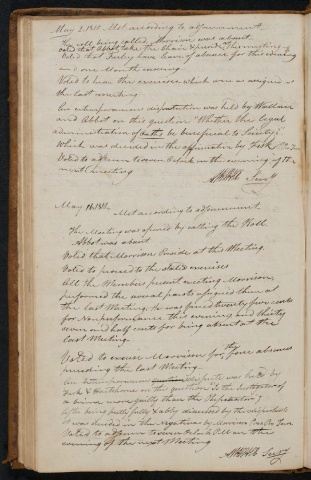 May 1. 1811. Met according to adjournment
The roll being called, Morrison was absent.
Voted that Abbot take the Chair &
Voted that Farley have leave of absence for this evening
one Month ensuing
Voted to hear the exercises which were as assigned at
the last meeting
An extemporaneous disputation was held by Wallace
and Abbot on this question "Whether the legal
administration of oaths be beneficial to Society";
which was decided in the affirmative by Fisk
Voted to adjourn to seven O'clock on the evening of
next meeting
Secy
May 16. 1811.
Met according to adjournment
The Meeting was opened by calling the Roll
Abbot was absent
Voted that Morrison Preside at this Meeting.
Voted to proceed to the stated exercises
All the Members present excepting Morrison
performed the several parts assigned them at
the last Meeting. He was fined twenty five cents
for Nonperformance this evening and thirty
seven and half cents for being absent at the
last Meeting.
Voted to excuse Morrison for the four absences
preceding the last Meeting
An Extemporaneous dispute was held by
Fisk & on this question "Is the Instigator of
a crime more guilty than the Perpetrator";
After being fully & ably discussed by the disputants
it was decided in the negative by Morrison
Voted to adjourn to seven O'clock P.M. on the
evening of the next Meeting
Secy